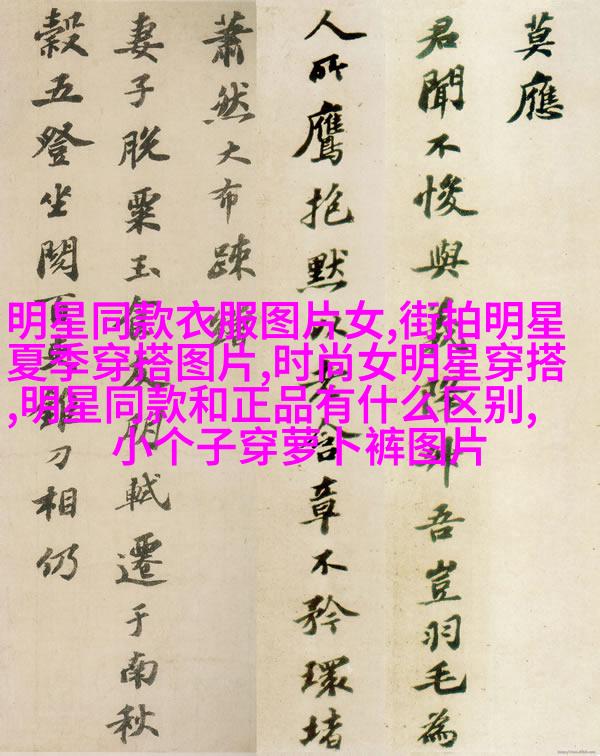 莫應
君聞不悛與降升吾豈羽毛為
人所鷹抱默以老含章不矜環堵
蕭然大布疎
妻子脫粟玉食友朋軾遷于南秋
穀五登坐閱百刀相仍
明星同款衣服图片女,街拍明星
夏季穿搭图片,时尚女明星穿搭
,明星同款和正品有什么区别,
小个子穿萝卜裤图片